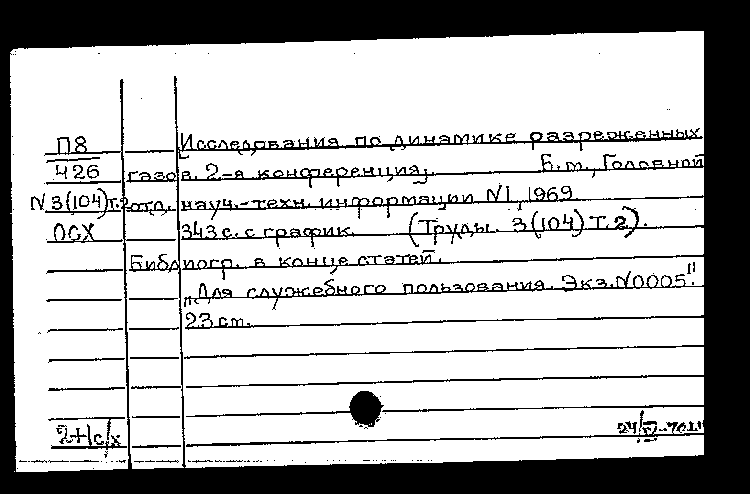 П8 Исследования по динамике разреженных
426 газов. 2-я конференция. Б.м., Головной
N3(104)т.2 отд. науч.-техн. информации N1, 1969.
ОСХ 343 с. с график. (Труды. 3(104) Т. 2).
Библиогр. в конце статей.
"Для служебного пользования. Экз.N0005".
23 см.
2+1с/х